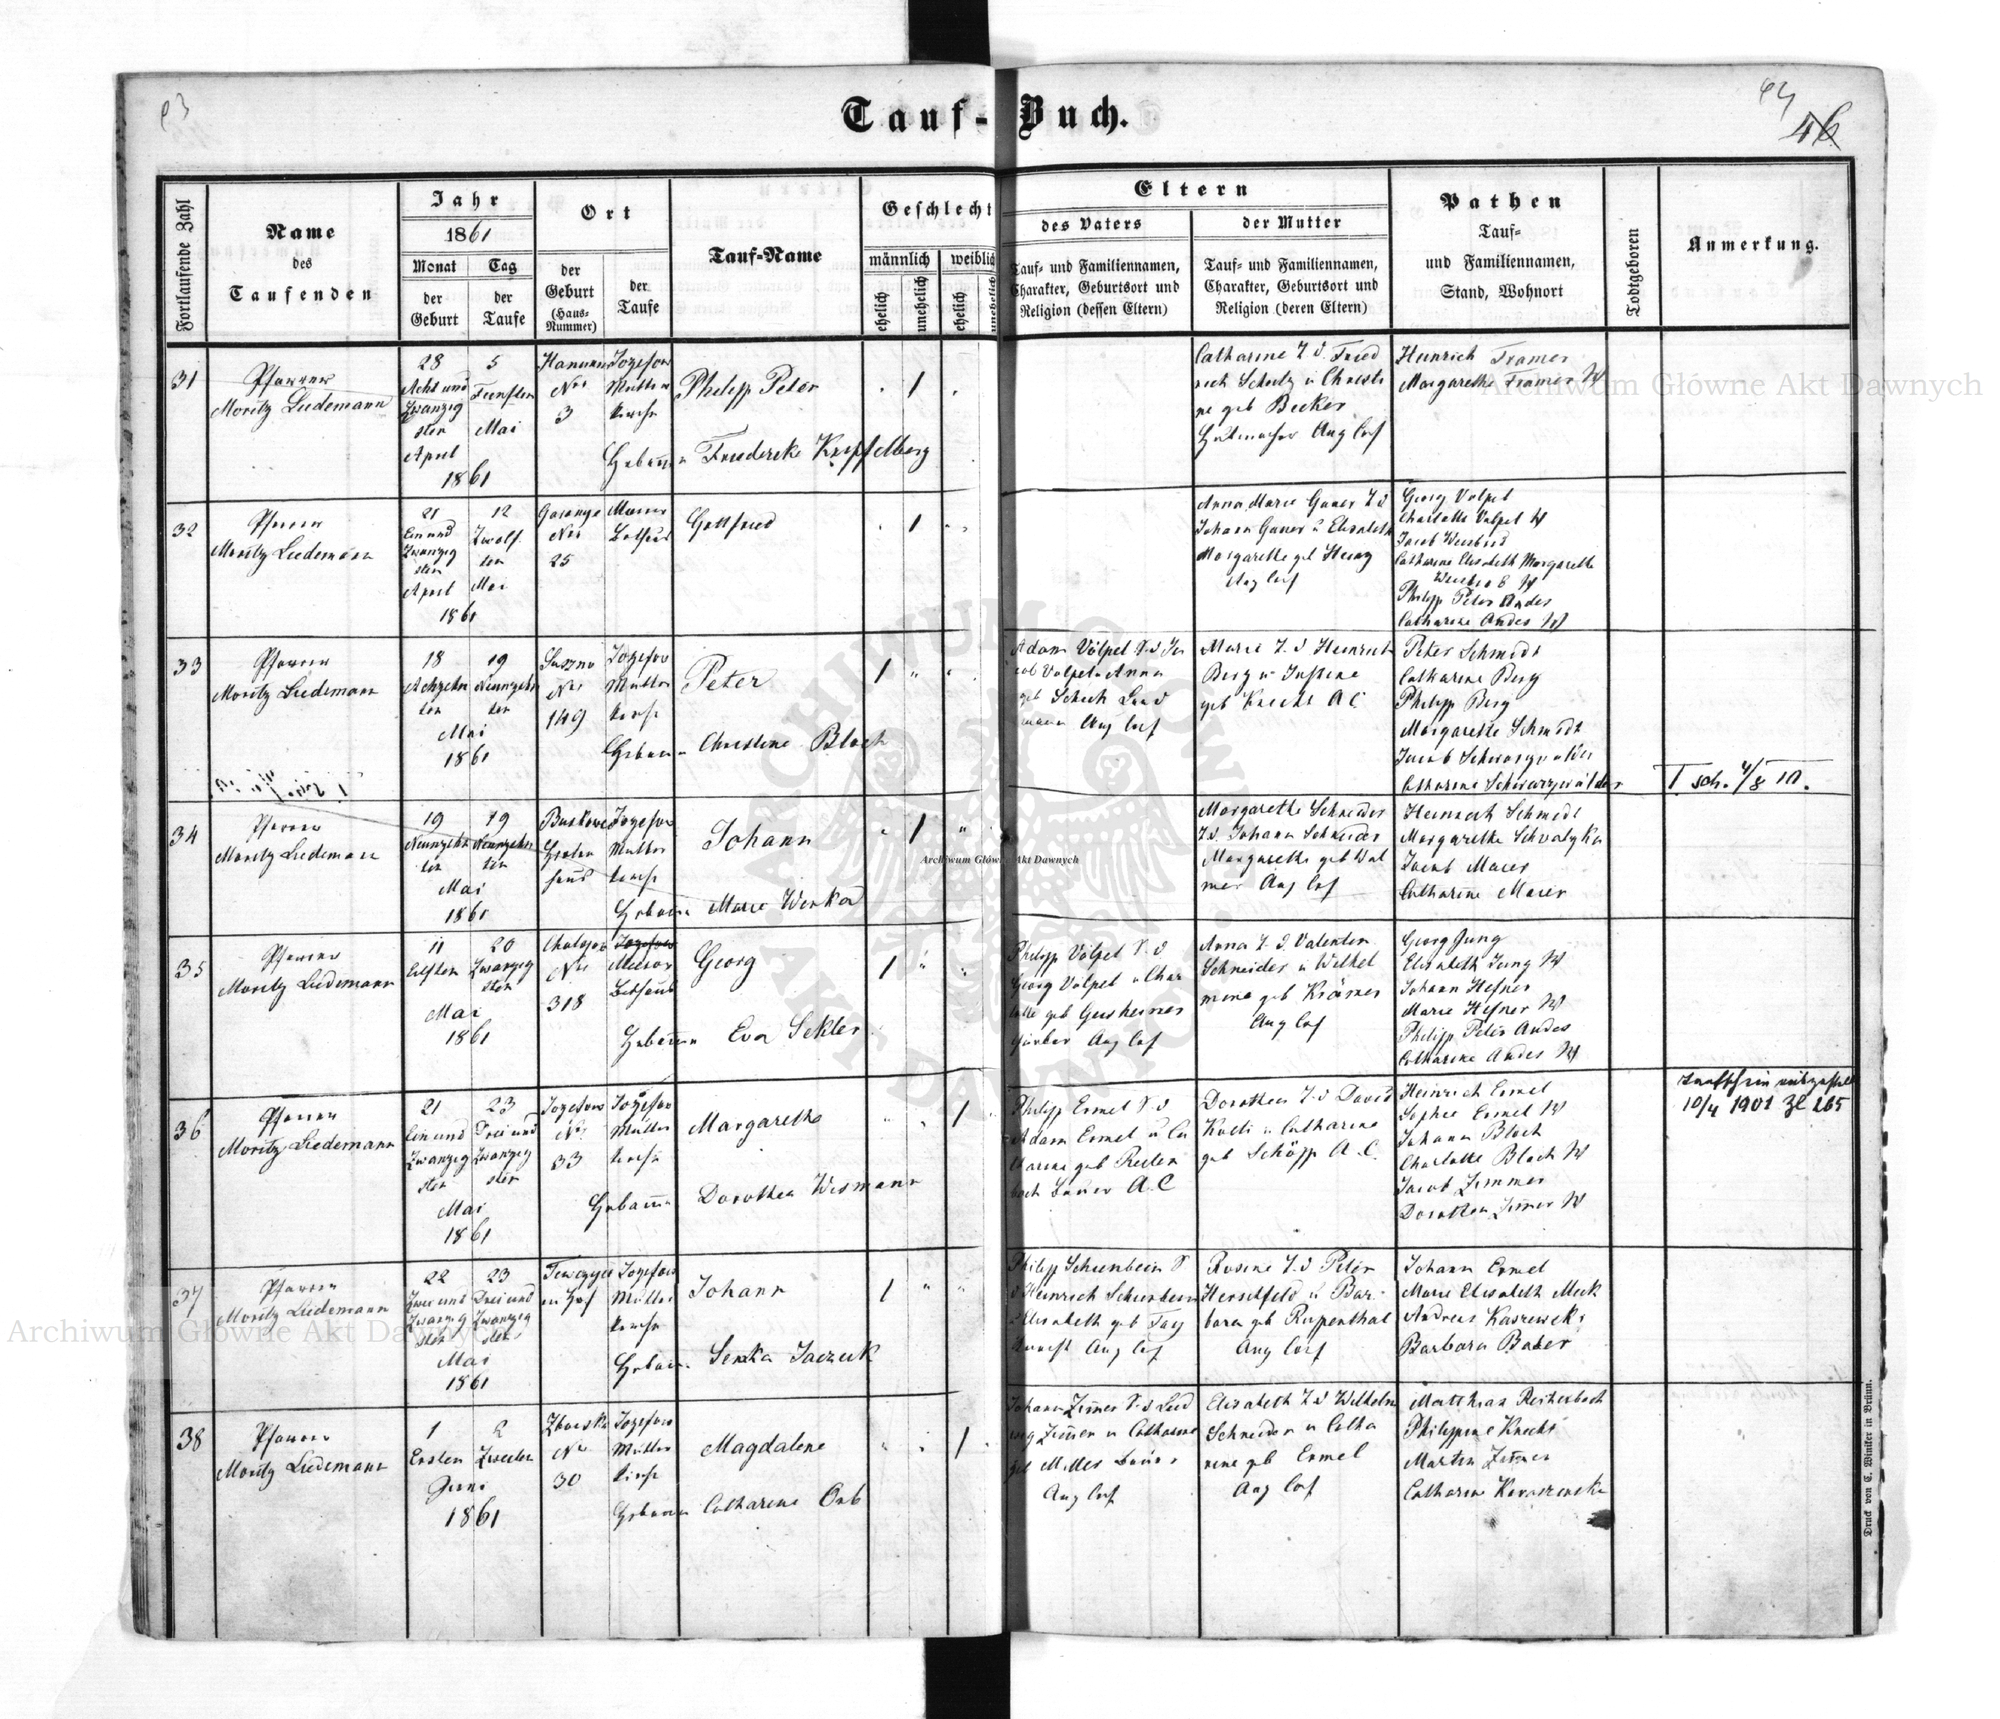 93
94
46
Tauf-Buch.
Fortlaufende Zahl
Name
des
Taufenden
Jahr
1861
Monat
der
Geburt
Tag
der
Taufe
Ort
der
Geburt
(Haus-
Nummer)
der
Taufe
Tauf-Name
Geschlecht
männlich
ehelich
unehelich
weiblich
ehelich
unehelich
Eltern
des Vaters
Tauf- und Familiennamen,
Charakter, Geburtsort und
Religion (dessen Eltern)
der Mutter
Tauf- und Familiennamen,
Charakter, Geburtsort und
Religion (deren Eltern)
Pathen
Tauf-
und Familiennamen,
Stand, Wohnort
Todtgeboren
Anmerkung.
31
Pfarrer
Moritz Liedemann
28
Acht und
Zwanzig
sten
April
5
Fünften
Mai
1861
No
3
Jozefow
Mutter
kirche
Philipp Peter
1
Hebamme Friedericke Kopfelberg
Catharine T. d. Fried
rich Schulz u Christi
ne geb Becker
Aug Conf
Heinrich Framer
Margarethe Framer W
32
Pfarrer
Moritz Liedemann
21
Ein und
Zwanzig
sten
April
12
Zwölf
ten
Mai
1861
No
25
Bethaus
Gottfried
1
Anna Marie Ganer T d
Johann Ganer u Elisabeth
Margarethe geb Herzy
Aug Conf
Georg Volpel
Charlotte Volpel W
Jacob
Catharine Elisabeth Margarethe
Philipp Peter Andes
Catharine Andes W
33
Pfarrer
Moritz Liedemann
18
Achzehn
ten
19
Neunzehn
ten
Mai
1861
No
149
Jozefow
Mutter
kirche
Peter
1
Hebamme Christine Bloch
Adam Völpel S. d Ja
cob Volpel u Anna
geb Schick Land
mann Aug Conf
Marie T. d Heinrich
Berg u Justine
geb Knecht A C
Peter Schmidt
Catharine Berg
Philipp Berg
Margarethe Schmidt
Jacob Schwarzwälder
Catharine Schwarzwälder
34
Pfarrer
Moritz Liedemann
19
Neunzehn
ten
19
Neunzehn
ten
Mai
1861
Jozefow
Mutter
kirche
Johann
1
Hebamme Marie Wenka
Margarethe Schneider
T d. Johann Schneider
Margarethe geb Wal
mer Aug Conf
Heinrich Schmidt
Margarethe
Jacob Maier
Catharine Maier
35
Pfarrer
Moritz Liedemann
11
Eilften
20
Zwanzig
sten
Mai
1861
No
318
Jozefow
Bethaus
Georg
1
Hebamme Eva Sekler
Philipp Völpel S. d
Georg Völpel u Char
lotte geb
Aug Conf
Anna T. d. Valentin
Schneider u Wilhel
mine geb Krämer
Aug Conf
Georg Jung
Elisabeth Jung W
Johann Hefner
Marie Hefner W
Philipp Peter Andes
Catharine Andes W
36
Pfarrer
Moritz Liedemann
21
Ein und
Zwanzig
sten
23
Drei und
Zwanzig
sten
Mai
1861
Jozefow
No
33
Jozefow
Mutter
kirche
Margarethe
1
Hebamme Dorothea Wismann
Philipp Ermel S. d
Adam Ermel u Ca
tharine geb Reiten
bach Bauer A. C
Dorothea T. d David
Kolb u Catharine
geb Schöpp A. C.
Heinrich Ermel
Sophie Ermel W
Johann Bloch
Charlotte Bloch W
Jacob Zimmer
Dorothea Zimmer W
10/4 1901 Zl 265
37
Pfarrer
Moritz Liedemann
22
Zwei und
Zwanzig
sten
23
Drei und
Zwanzig
sten
Mai
1861
Jozefow
Mutter
kirche
Johann
1
Hebamme Senka Jaczuk
Philipp Schienbein S
d Heinrich Schienbein
u Elisabeth geb
Aug Conf
Rosine T. d Peter
Herschfeld u Bar
bara geb Ruppenthal
Aug Conf
Johann Ermel
Marie Elisabeth Meck
Andreas
Barbara Bader
38
Pfarrer
Moritz Liedemann
1
Ersten
2
Zweiten
Juni
1861
No
30
Jozefow
Mutter
kirche
Magdalene
1
Hebamme Catharine Orb
Johann Zimmer S. d Lud
wig Zimmer u Catharine
geb Miller Bauer
Aug Conf
Elisabeth T d Wilhelm
Schneider u Catha
rine geb Ermel
Aug Conf
Matthias Reitenbach
Philippine Knecht
Martin Zimmer
Catharine
Druck von C. Winiker in Brünn.
Archiwum Główne Akt Dawnych
Archiwum Główne Akt Dawnych
Archiwum Główne Akt Dawnych
ARCHIWUM GŁÓWNE AKT DAWNYCH